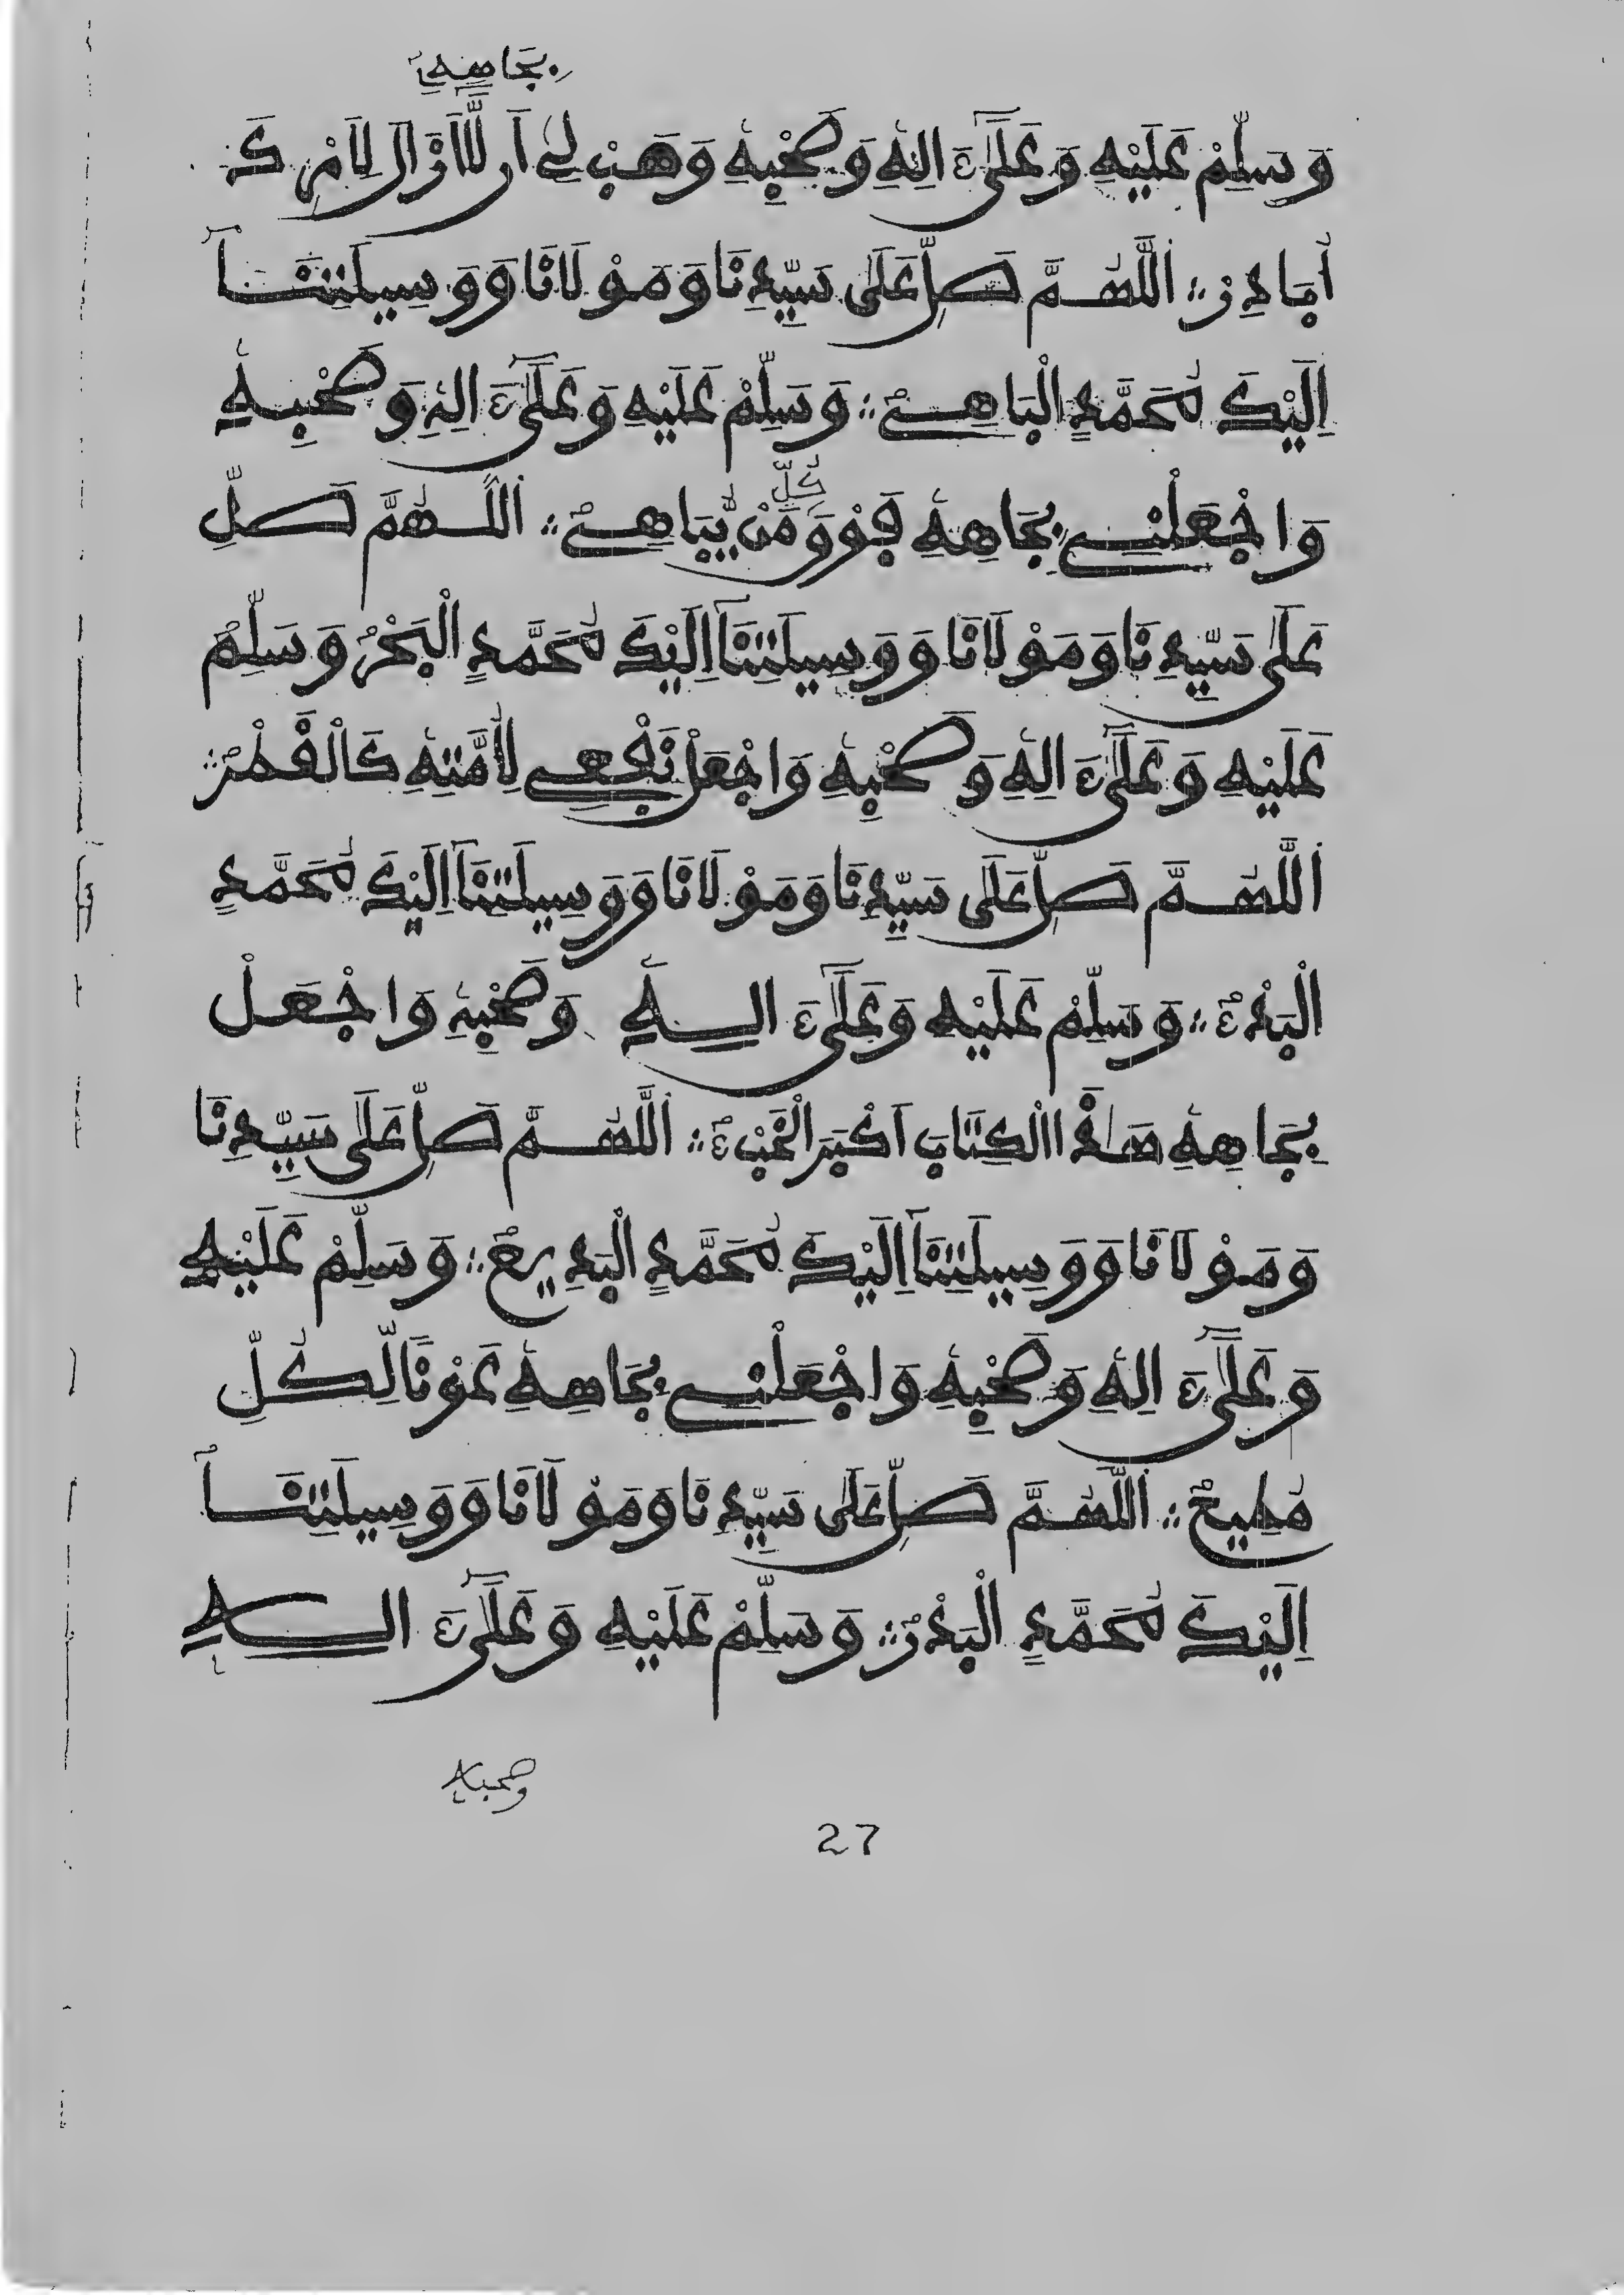 بِجَاهِهِ
وَسَلِّمْ عَلَيْهِ وَعَلَىٰٓ ءَالِهِ وَصَحْبِهِ وَهَبْ لِي أَن لَّا أَزَالَ لِأَمْرِكَ
أُبَادِرْ؛ اَللَّهُمَّ صَلِّ عَلَى سَيِّدِنَا وَمَوْلَانَا وَوَسِيلَتِنَآ
إِلَيْكَ مُحَمَّدٍ الْبَاهِي؛ وَسَلِّمْ عَلَيْهِ وَعَلَىٰٓ ءَالِهِ وَصَحْبِهِ
وَاجْعَلْنِي بِجَاهِهِ فَوْقَ كُلِّ مَنْ يُّبَاهِي؛ اَللَّهُمَّ صَلِّ
عَلَى سَيِّدِنَا وَمَوْلَانَا وَوَسِيلَتِنَآ إِلَيْكَ مُحَمَّدٍ الْبَحْرُ وَسَلِّمْ
عَلَيْهِ وَعَلَىٰٓ ءَالِهِ وَصَحْبِهِ وَاجْعَلْ نَفْعِي لِأُمَّتِهِ كَالْقَطْرْ؛
اَللَّهُمَّ صَلِّ عَلَى سَيِّدِنَا وَمَوْلَانَا وَوَسِيلَتِنَآ إِلَيْكَ مُحَمَّدٍ
الْبَدْءُ؛ وَسَلِّمْ عَلَيْهِ وَعَلَىٰٓ ءَالِهِ وَصَحْبِهِ وَاجْعَلْ
بِجَاهِهِ هَٰذَا الْكِتَابَ أَكْبَرَ الْخَبْءُ؛ اَللَّهُمَّ صَلِّ عَلَى سَيِّدِنَا
وَمَوْلَانَا وَوَسِيلَتِنَآ إِلَيْكَ مُحَمَّدٍ الْبَدِيعُ؛ وَسَلِّمْ عَلَيْهِ
وَعَلَىٰٓ ءَالِهِ وَصَحْبِهِ وَاجْعَلْنِي بِجَاهِهِ عَوْنًا لِّكُلِّ
مُطِيعْ؛ اَللَّهُمَّ صَلِّ عَلَى سَيِّدِنَا وَمَوْلَانَا وَوَسِيلَتِنَآ
إِلَيْكَ مُحَمَّدٍ الْبَدْرُ؛ وَسَلِّمْ عَلَيْهِ وَعَلَىٰٓ ءَالِهِ
وصحبه
27